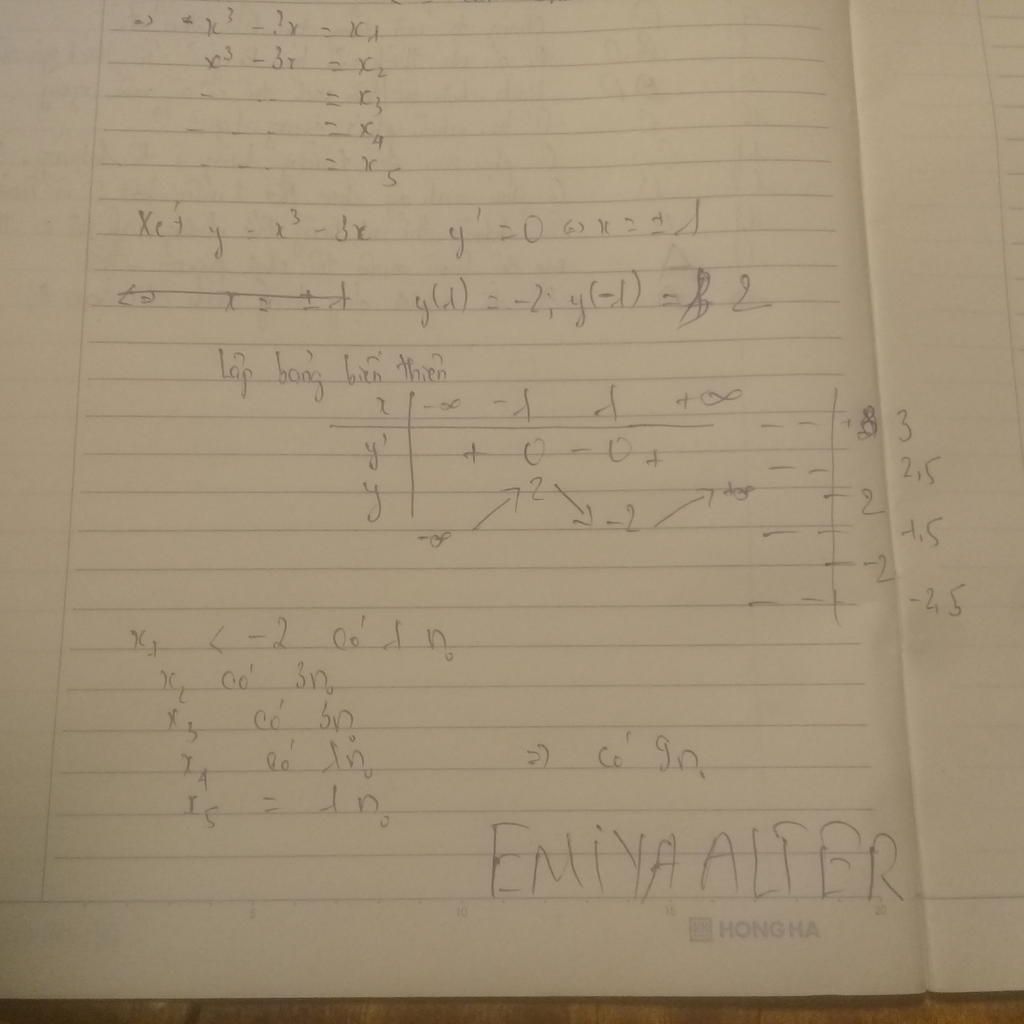 => x³ - 3x = x₁
x³ - 3x = x₂
- - - = x₃
- - - = x₄
- - - = x₅
Xét y = x³ - 3x y' = 0 <=> x = ± 1
<=> x = ± 1 y(1) = -2; y(-1) = 2
lập bảng biến thiên
x -∞ -1 1 +∞
y' + 0 - 0 +
y -∞ 2 -2 +∞
3
2,5
2
1,5
-2
-2,5
x₁ < -2 có 1 n₀
x₂ có 3n₀
x₃ có 3n₀
x₄ có 1n₀ => có 9n₀
x₅ = 1 n₀
EMIYA ALTER
5 10 15 20
HONG HA